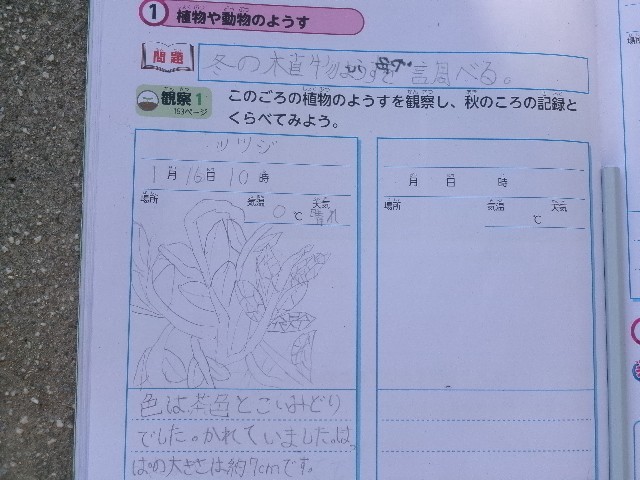 1 植物や動物のようす
問題 冬の植物のようすを調べる。
観察1 このごろの植物のようすを観察し、秋のころの記録と
153ページ くらべてみよう。
ツツジ
1月16日10時
場所 気温 0℃ 天気 晴れ
色は茶色とこいみどり
でした。かれていました。はっ
ぱの大きさは約7cmです。
月 日 時
場所 気温 ℃ 天気